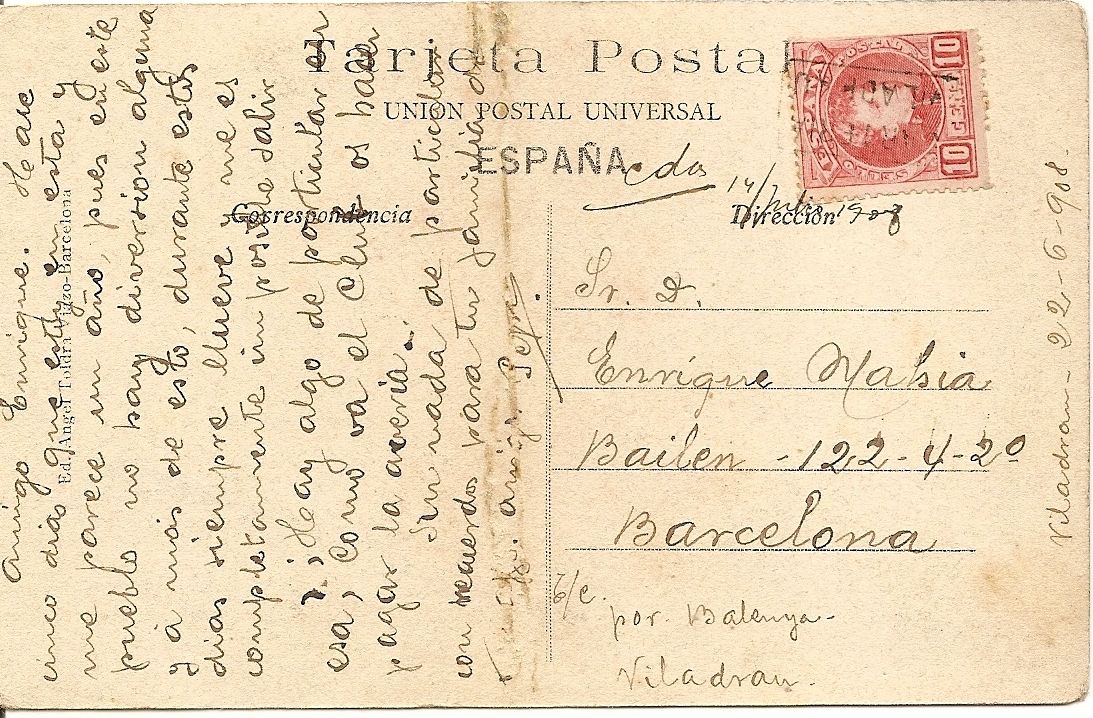 Tarjeta Postal
UNION POSTAL UNIVERSAL
ESPAÑA
Correspondencia
Dirección
Ed. Angel Toldrá Viazo-Barcelona
Amigo Enrique. Hace
cinco dias que estoy en esta y
me parece un año, pues en este
pueblo no hay diversion alguna
y á mas de esto, durante estos
dias siempre llueve y me es
completamente imposible salir
¿Hay algo de particular en
esa, como va el Club os hacer
pagar la averia.
Sin nada de particular
con recuerdos para tu familia
amigo Pepe
cdo
14/Julio 1908
ESPAÑA
10
10
Sr. D.
Enrique Mahia
Bailen - 122-4-2º
Barcelona
Viladrau - 22-6-908
S/c.
por Balenya-
Viladrau.